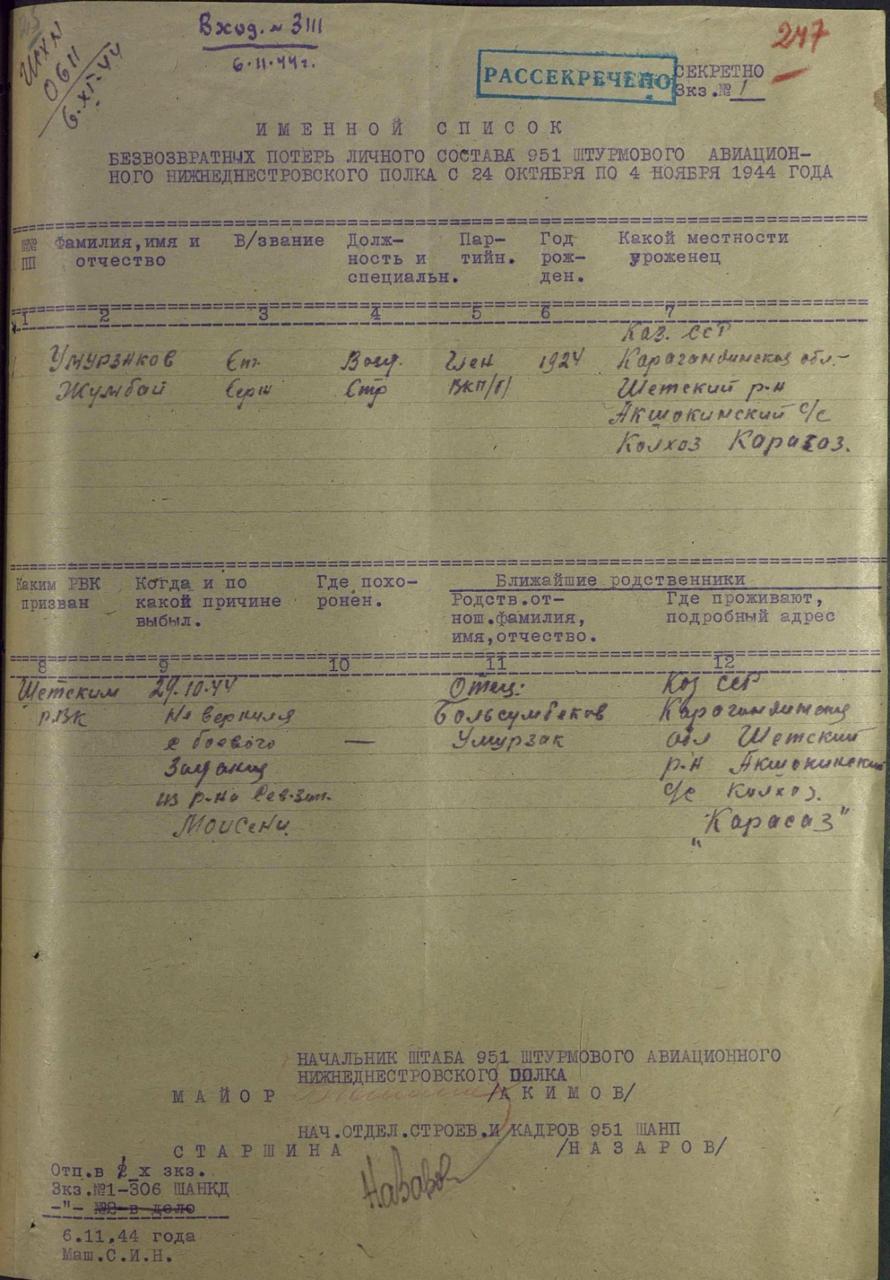 Вход. № 3111
6.11.44г.
247
РАССЕКРЕЧЕНО
СЕКРЕТНО
Экз.№ 1
0611
6.XI.44
ИМЕННОЙ СПИСОК
БЕЗВОЗВРАТНЫХ ПОТЕРЬ ЛИЧНОГО СОСТАВА 951 ШТУРМОВОГО АВИАЦИОН-
НОГО НИЖНЕДНЕСТРОВСКОГО ПОЛКА С 24 ОКТЯБРЯ ПО 4 НОЯБРЯ 1944 ГОДА
№№ Фамилия,имя и В/звание Долж- Пар- Год Какой местности
ПП отчество ность и тийн. рож- уроженец
специальн. ден.
1 2 3 4 5 6 7
Каз. ССР
1 Умурзаков Возд. Член 1924 Карагандинская обл.
Жумбай Серж Стр ВКП/б/ Шетский р-н
Акшокинский с/с
Колхоз
Каким РВК Когда и по Где похо- Ближайшие родственники
призван какой причине ронен. Родств.от- Где проживают,
выбыл. нош.фамилия, подробный адрес
имя,отчество.
8 9 10 11 12
Шетским 29.10.44 Отец: Каз ССР
РВК Не вернулся Большумбеков Карагандинская
с боевого — Умурзак обл Шетский
задания р-н Акшокинский
из р-на Сев-зап. с/с Колхоз.
Моисени "Карасаз"
НАЧАЛЬНИК ШТАБА 951 ШТУРМОВОГО АВИАЦИОННОГО
НИЖНЕДНЕСТРОВСКОГО ПОЛКА
МАЙОР /АКИМОВ/
НАЧ.ОТДЕЛ.СТРОЕВ.И КАДРОВ 951 ШАНП
СТАРШИНА /НАЗАРОВ/
Назаров
Отп.в 2 х экз.
Экз.№1-306 ШАНКД
-"- №2-в дело
6.11.44 года
Маш.С.И.Н.